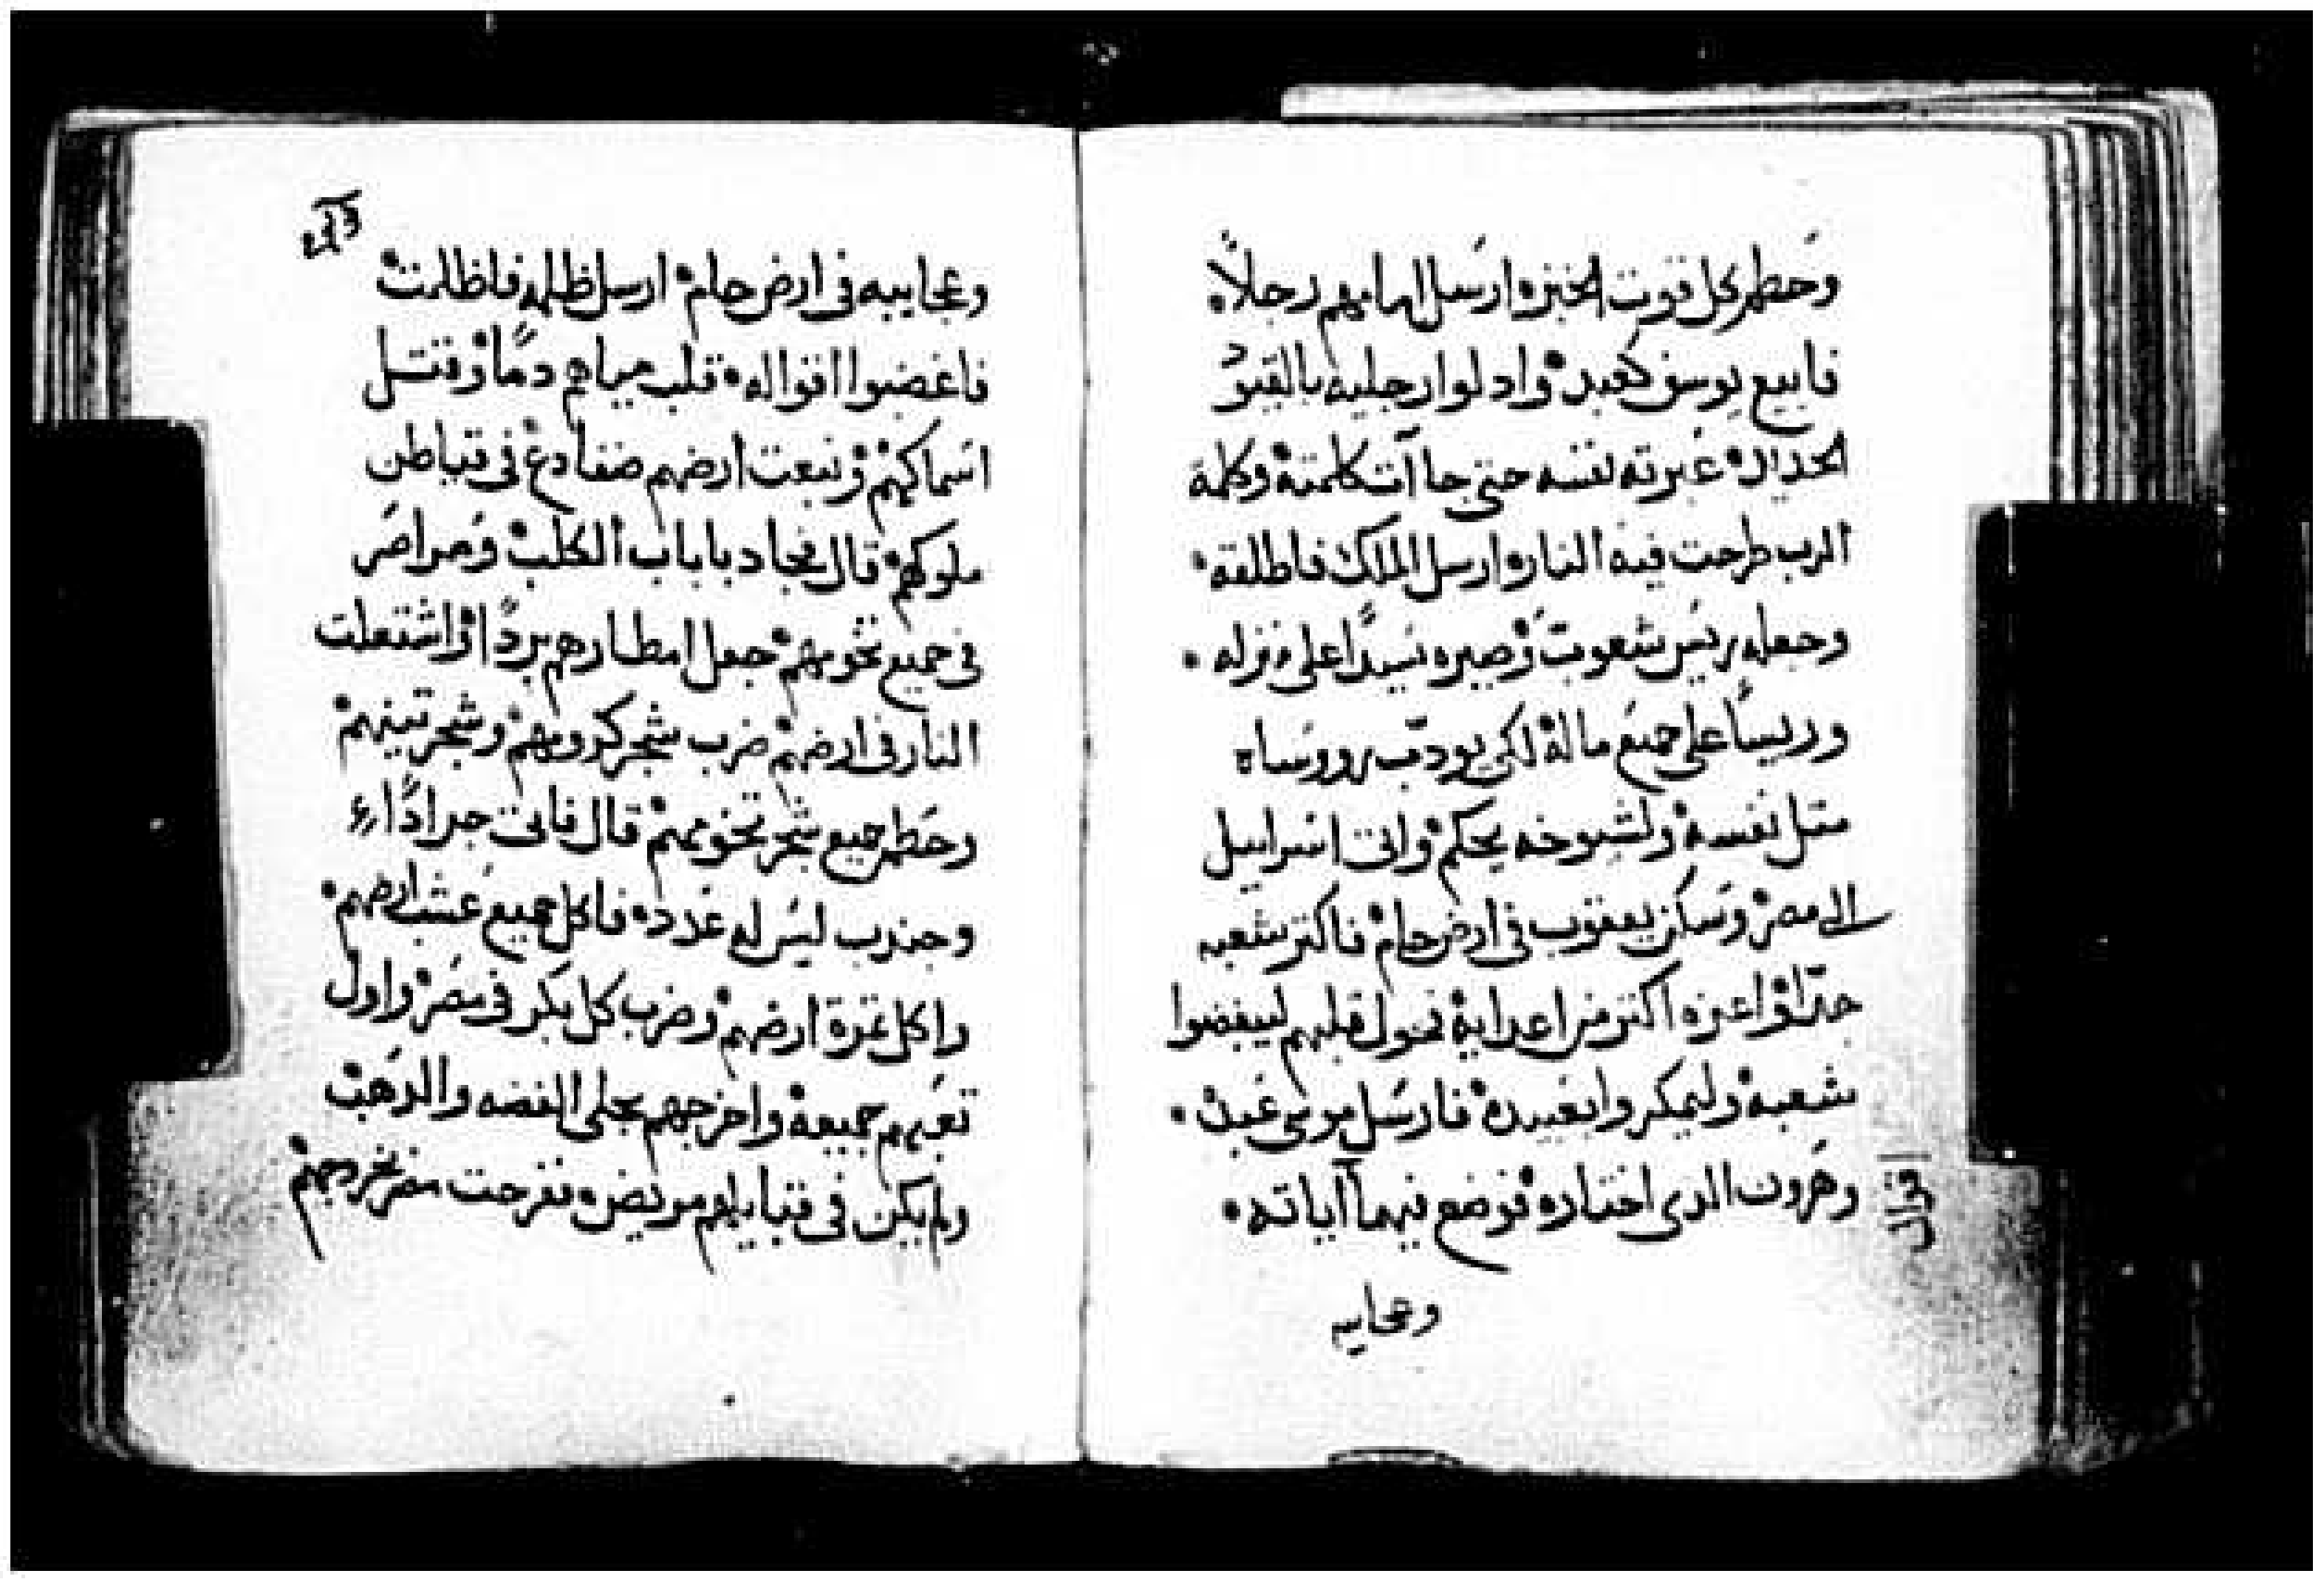 وحطم كل قوت الخبز وارسل امامهم رجلاً
فابيع يوسف كعبد وادلوا رجليه بالقيود
الحديد عبرته نفسه حتى جاآت كلمته وكلمة
الرب طرحت فيه النار وارسل الملك فاطلقه
وجعله ريس شعوب وصيره سيداً على منزله
وريساً على جميع ماله لكى يودب روساه
متل نفسه ولشيوخه يحكم واتى اسراييل
الى مصر وسكن يعقوب فى ارض حام فاكتر شعبه
جداً واعزه اكتر من اعدايه فحول قلبهم ليبغضوا
شعبه وليمكروا بعبيده فارسل موسى عبده
وهرون الدى اختاره فوضع فيهما آياته
اقوال
وعجايبه
وعجايبه فى ارض حام ارسل ظلمه فاظلمت
فاغضبوا اقواله قلب مياهم دماً وقتل
اسماكهم ونبعت ارضهم ضفادع فى قباطن
ملوكهم قال فجا دباب الكلب
فى جميع تخومهم جعل امطارهم برداً واشتعلت
النار فى ارضهم ضرب شجر كرومهم وشجر تينهم
وحطم جميع شجر تخومهم قال فاتى جراداً
وجندب ليس له عدده فاكل جميع عشب ارضهم
واكل تمرة ارضهم وضرب كل بكر فى مصر واول
تعبهم جميعه واخرجهم بحلى الفضه والدهب
ولم يكن فى قبايلهم مريض وفرحت مصر بخروجهم